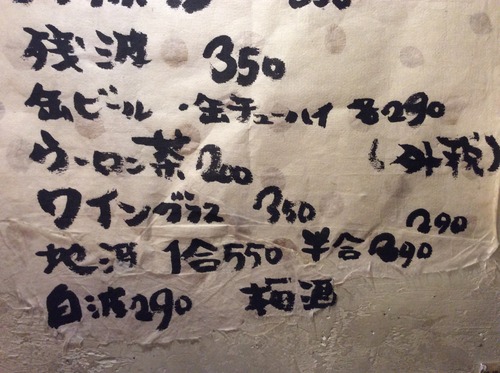 残波 350
缶ビール ・缶チューハイ 各290
ウーロン茶 200 (外税)
ワイングラス 350
地酒 1合550 半合290
白波290 梅酒 290